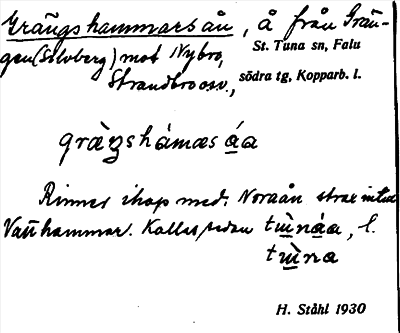 Grängshammarsån, å från Grän-
gen (Silvberg) mot Nybro,
St. Tuna sn, Falu
Strandbro osv.,
södra tg, Kopparb. l.
græ̀ŋshámæsáa
Rinner ihop med Noraån strax intill
Vatthammar. Kallas sedan tùnáa, l.
tùna
H. Ståhl 1930